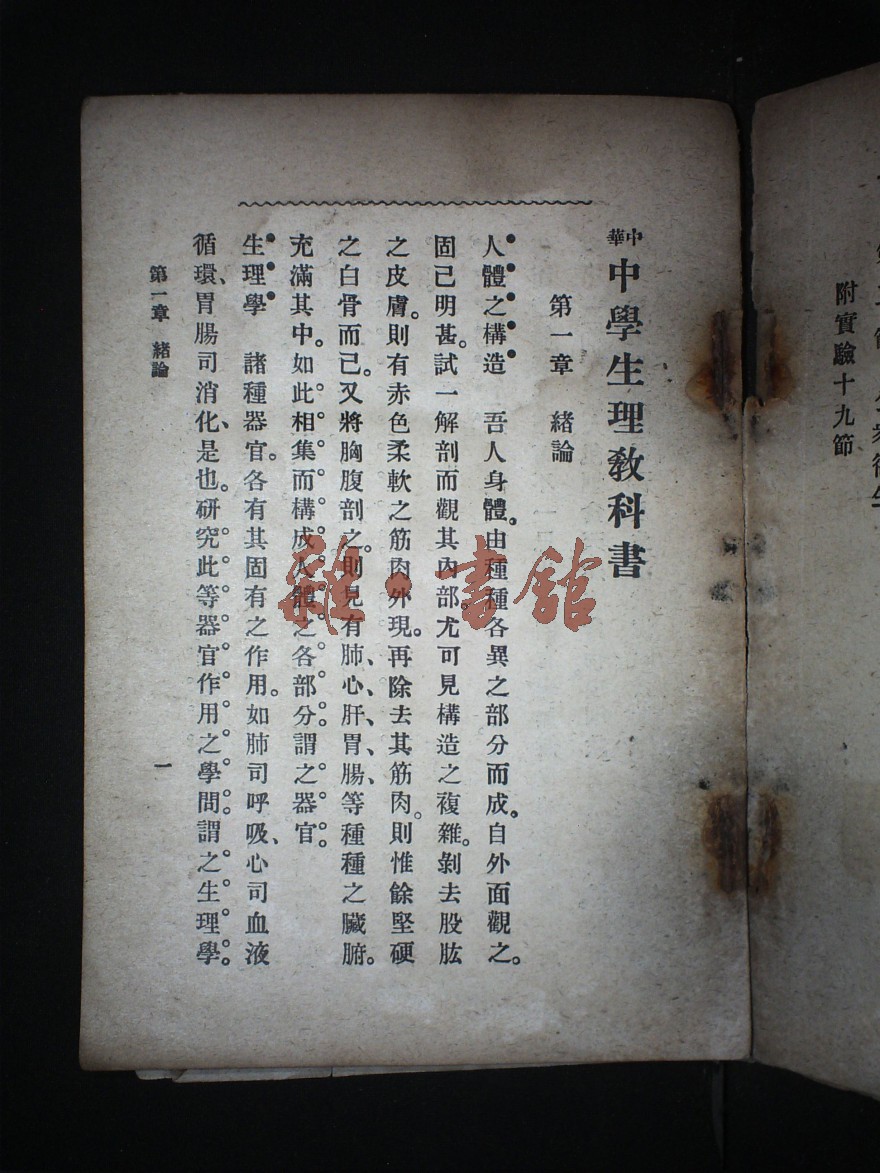 附實驗十九節
中華中學生理教科書
第一章　緒論
人體之構造　吾人身體。由種種各異之部分而成。自外面觀之。
固已明甚。試一解剖而觀其內部。尤可見構造之複雜。剝去股肱
之皮膚。則有赤色柔軟之筋肉外現。再除去其筋肉。則惟餘堅硬
之白骨而已。又將胸腹剖之。則見有肺、心、肝、胃、腸、等種種之臟腑。
充滿其中。如此相集而構成人體之各部分。謂之器官。
生理學　諸種器官。各有其固有之作用。如肺司呼吸、心司血液
循環、胃腸司消化、是也。研究此等器官作用之學問。謂之生理學。
第一章　緒論
一
雜·書館